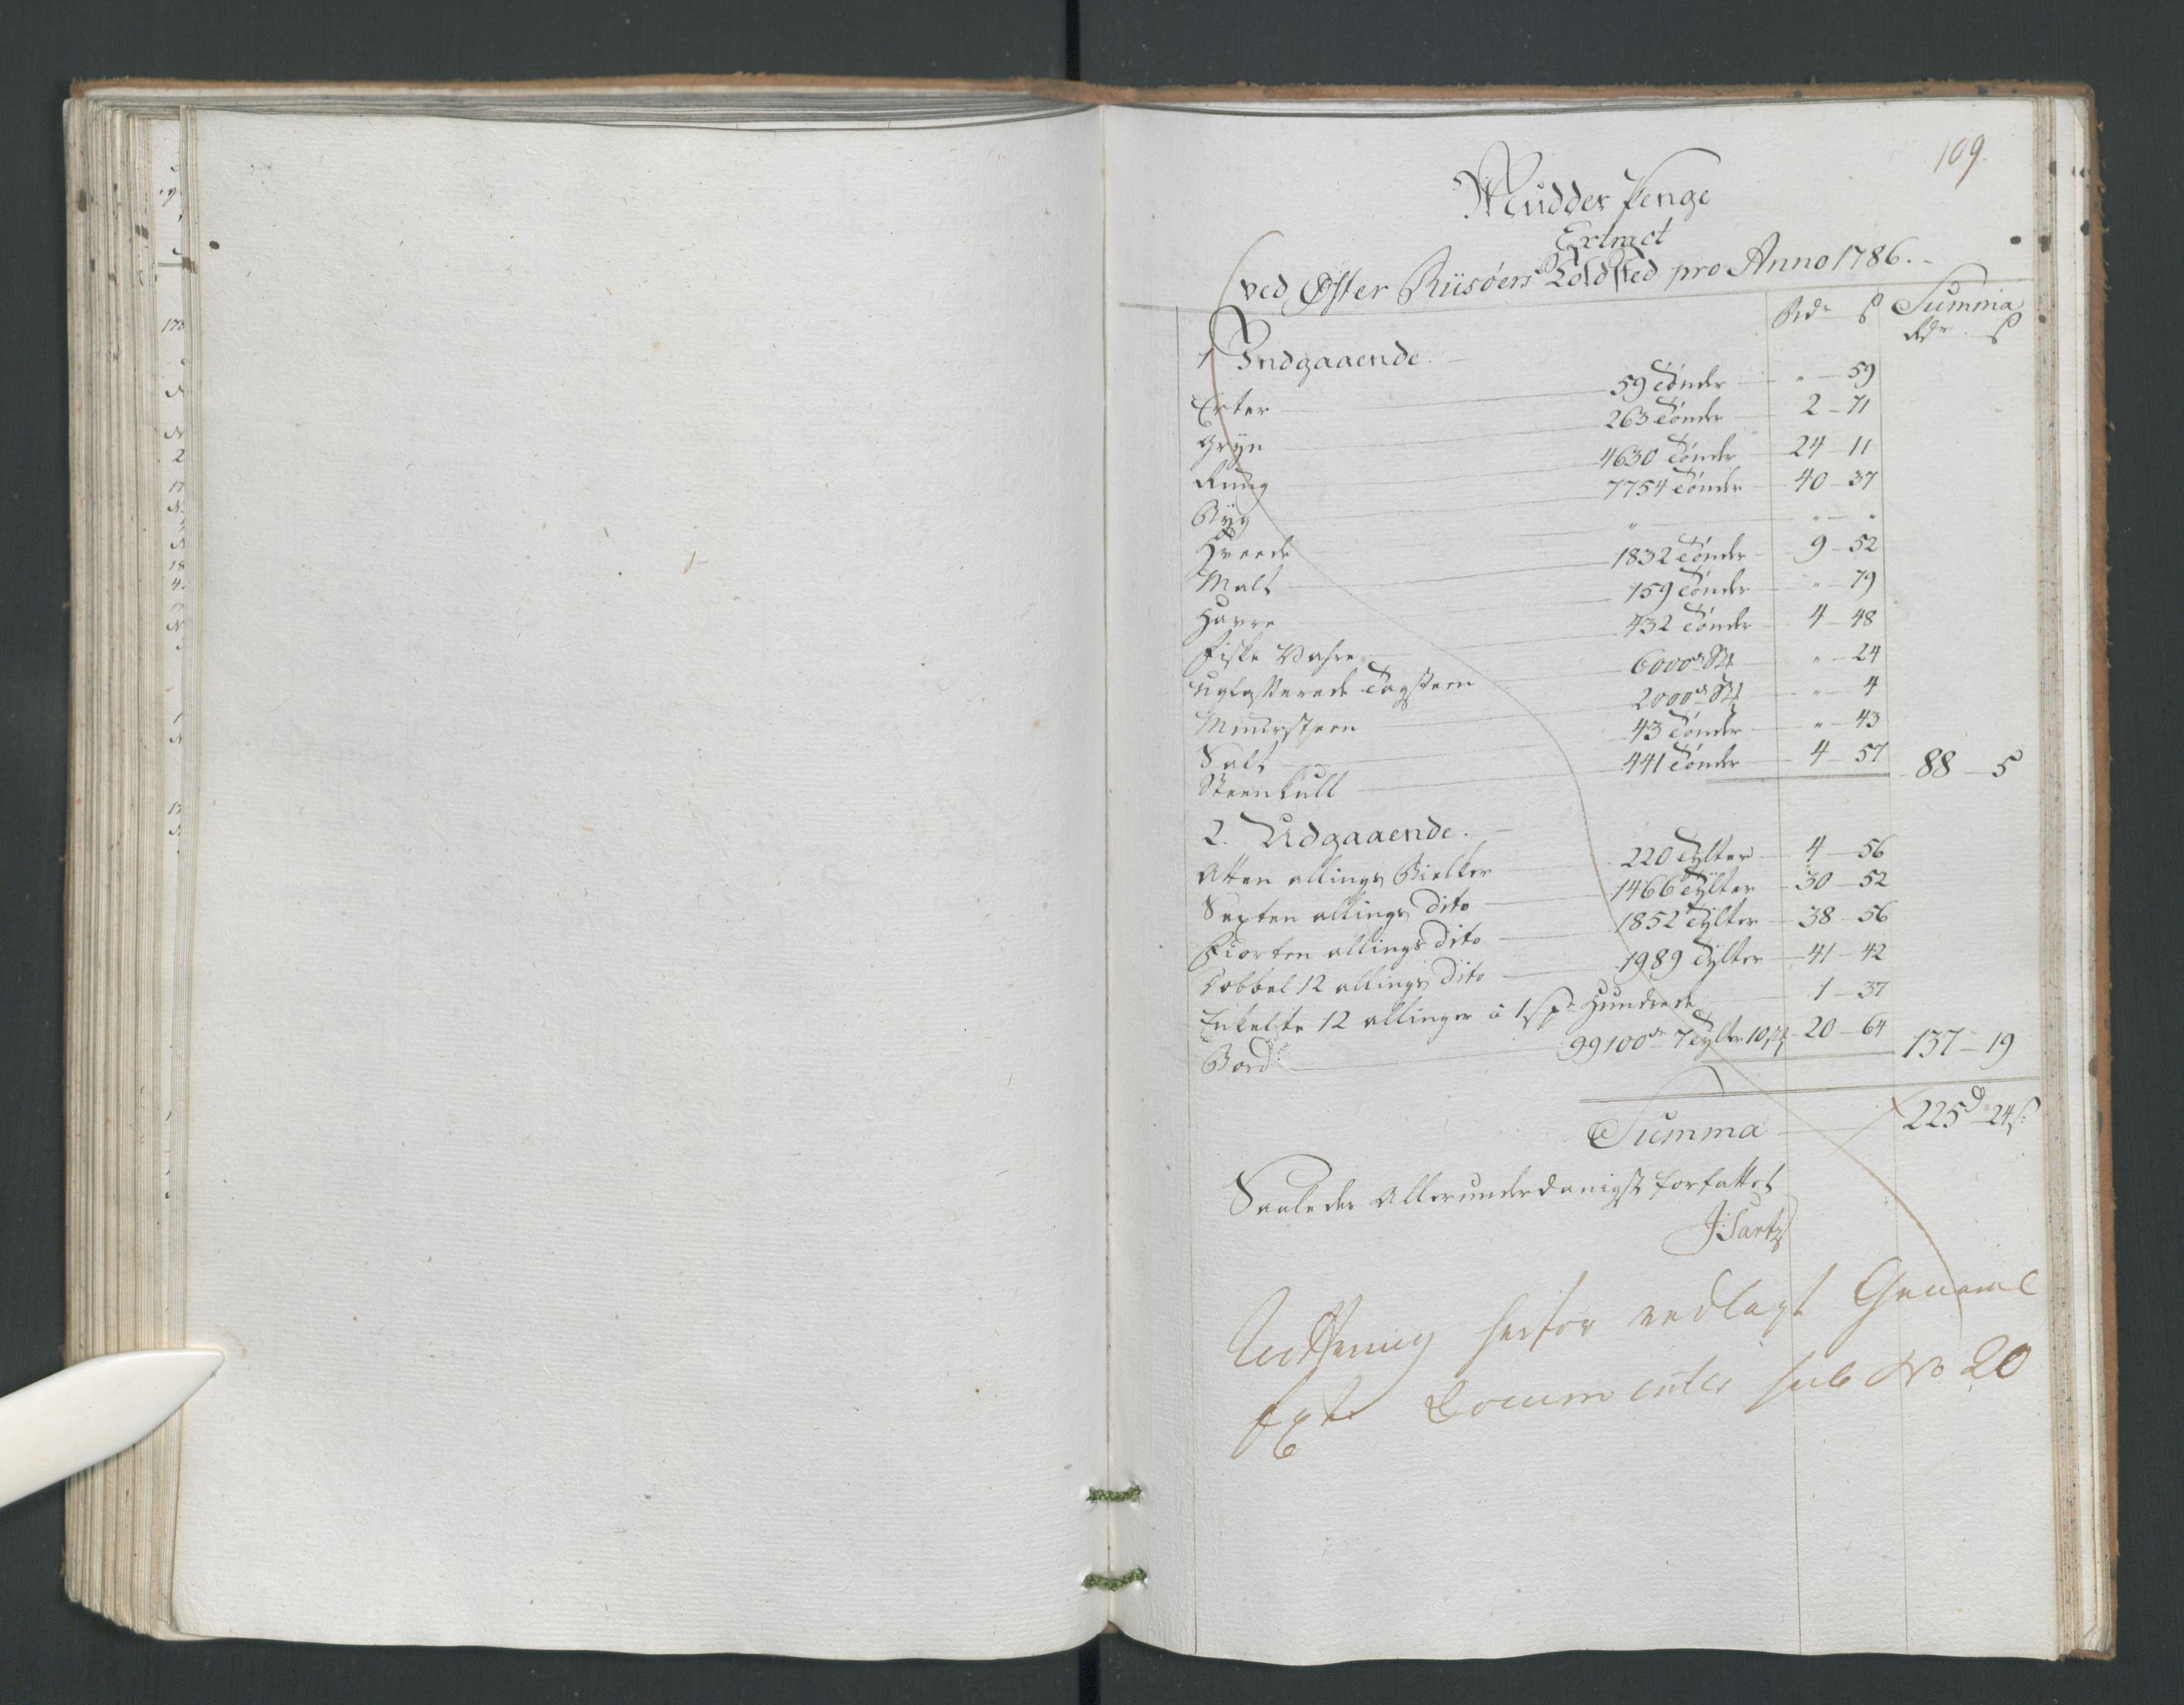 109.
Mudder Penge
Extract
ved Øster Riisøers Toldsted pro Anno 1786.
Rdr ß Summa
Rdr ß
1 Indgaaende.
Erter 59 Tønder " 59
Gryn 263 Tønder 2 - 71
Rung 4630 Tønder 24 - 11
Byg 7754 Tønder 40 - 37
Hveede " " "
Malt 1832 Tønder 9 - 52
Havre 159 Tønder " - 79
Fiske Vahre 432 Tønder 4 - 48
Uglasserede Tagsteen 6000de St " - 24
Muursteen 2000de St " - 4
Salt 43 Tønder " - 43
Steenkull 441 Tønder 4 - 57 88 - 5
2. Udgaaende.
Atten allings Bielker 220 Tylter 4 - 56
Sexten allings dito 1466 Tylter 30 - 52
Fiorten allings dito 1852 Tylter 38 - 56
Dobbel 12 allings dito 1989 Tylter 41 - 42
Enkelte 12 allinger à 1 ß pr Hundrede 1 - 37
Bord 99100de 7 Tylter 10 st 20 - 64 137 - 19
Summa 225 d 24 ß.
Saaledes Allerunderdanigst forfattet
J: Sartz
herfor vedlagt General
Ext. Documenter sub No 20